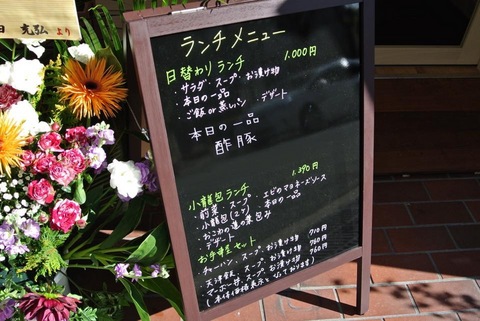 田 充弘 より
ランチメニュー
日替わりランチ 1,000円
・サラダ・スープ・お漬け物
・本日の一品
・ご飯 or 蒸しパン ・デザート
本日の一品
酢豚
小籠包ランチ 1,390円
・前菜・スープ・エビのマヨネーズソース
・小籠包(2ケ)・本日の一品
・おこわの蓮の葉包み
・デザート
お手軽セット
チャーハン・スープ・お漬け物 710円
天津飯・スープ・お漬け物 760円
マーボー丼・スープ・お漬け物 760円